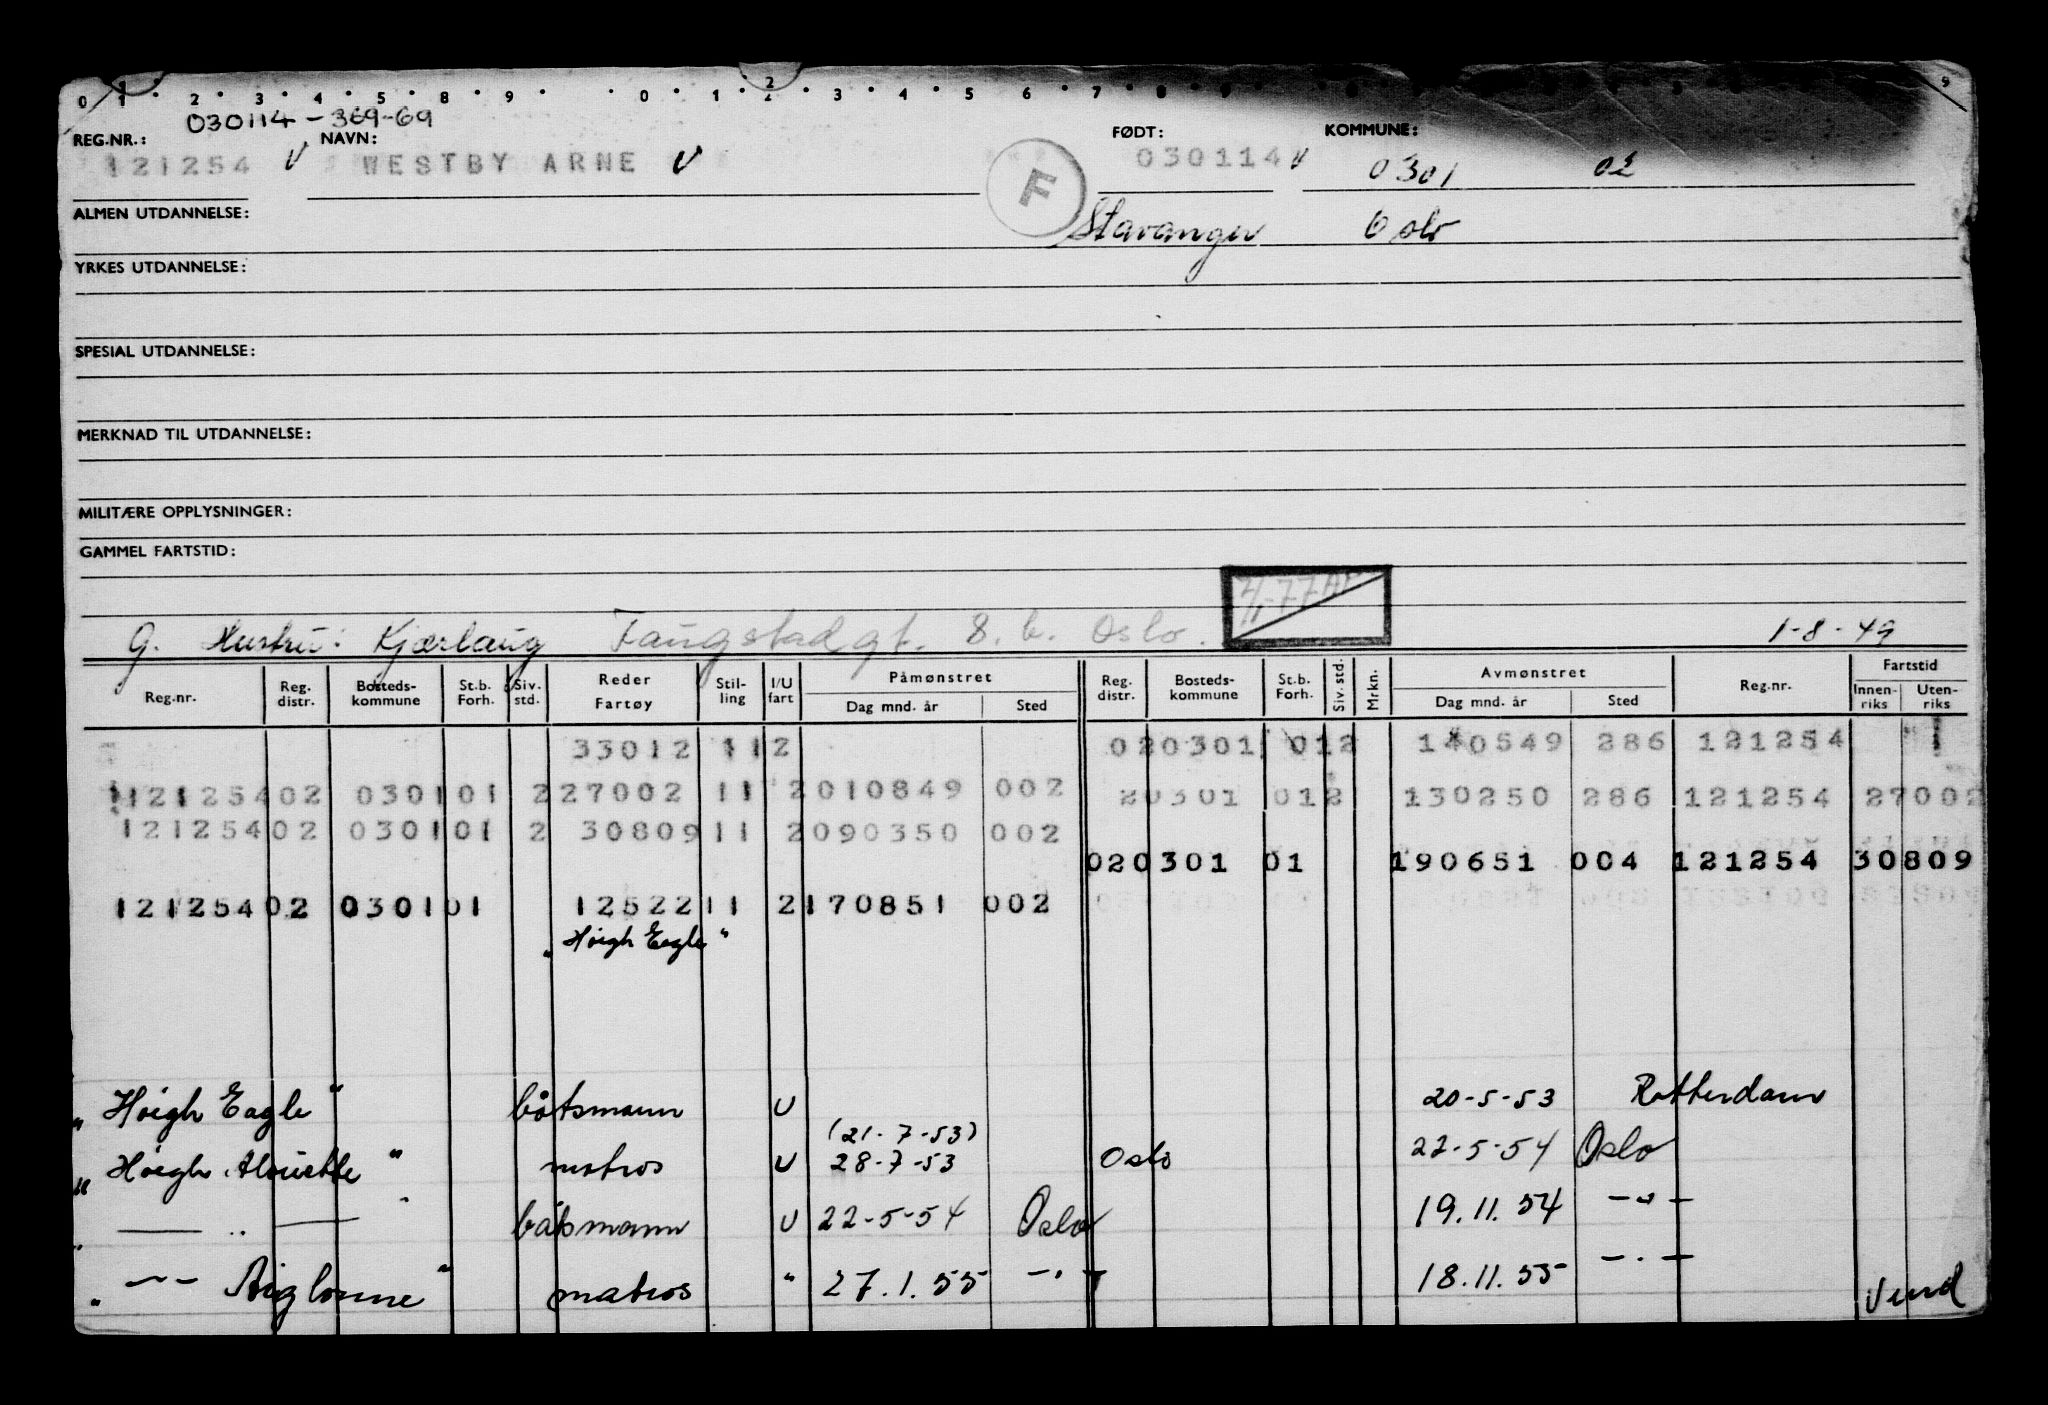 0 1 2 3 4 5 8 9 0 1 2 3 4 5 6 7 8 9
2
030114-369-69
REG.NR.: NAVN: FØDT: KOMMUNE:
121254 V WESTBY ARNE V F 030114 V 0301 02
ALMEN UTDANNELSE: Stavanger Oslo
YRKES UTDANNELSE:
SPESIAL UTDANNELSE:
MERKNAD TIL UTDANNELSE:
MILITÆRE OPPLYSNINGER:
GAMMEL FARTSTID:
G. Hustru: Kjærlaug Fangstadgt. 8. b. Oslo. 1-8-49
Reg.nr. Reg. distr. Bosteds-kommune St.b. Forh. Siv. std. Reder Fartøy Stil-ling I/U fart Påmønstret Dag mnd. år Sted Reg. distr. Bosteds-kommune St.b. Forh. Siv. std. Mrkn. Avmønstret Dag mnd. år Sted Reg.nr. Fartstid Innen-riks Uten-riks
33012 11 2 02 0301 01 2 140549 286 121254 1
121254 02 0301 01 2 27002 11 2 010849 002 2 0301 01 2 130250 286 121254 27002
121254 02 0301 01 2 30809 11 2 090350 002
02 0301 01 190651 004 121254 30809
121254 02 0301 01 12522 11 2 170851 002
"Höigh Eagle"
"Höigh Eagle" båtsmann U 20-5-53 Rotterdam
(21-7-53)
"Höigh Alouette" matros U 28-7-53 Oslo 22-5-54 Oslo
" — " — " båtsmann U 22-5-54 Oslo 19.11.54 —"—
" —"— Aiglonne" matros " 27.1.55 —"— 18.11.55 —"—
Vend